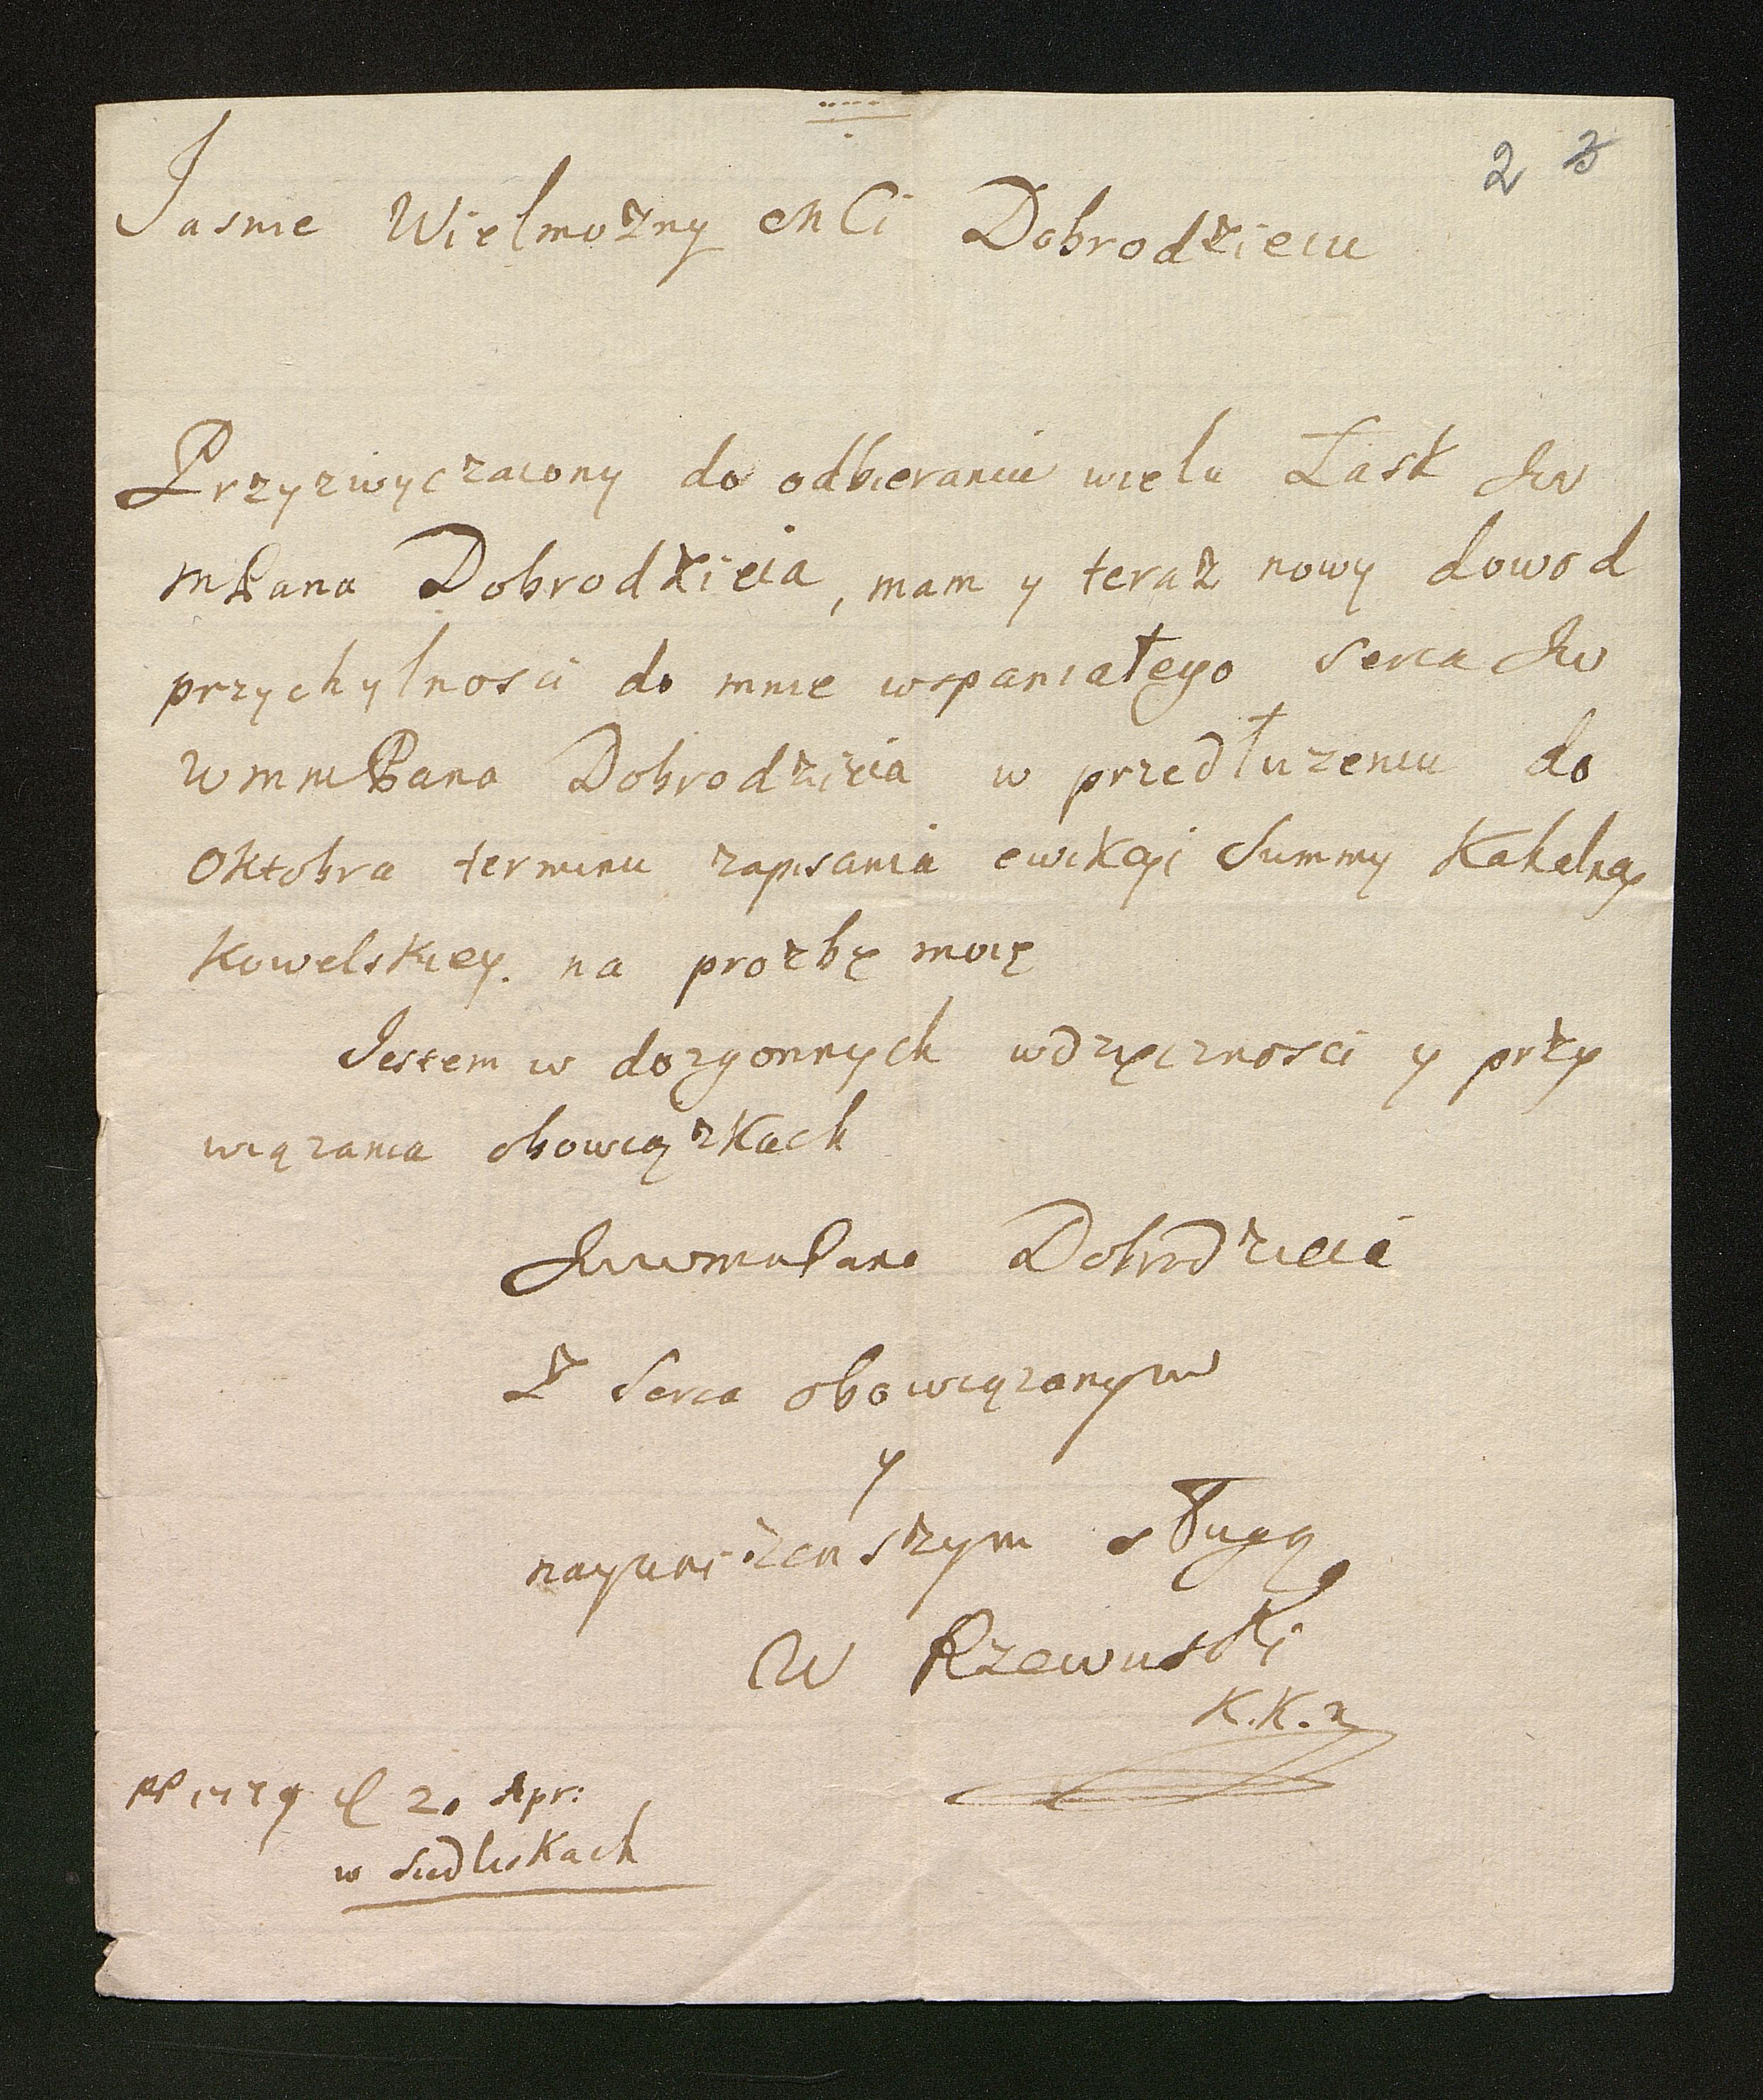 2 3
Jasnie Wielmożny Mci Dobrodzieiu
Przyzwyczaiony do odbierania wielu Łask Jw
mPana Dobrodzieia, mam y teraz nowy dowod
przychylnosci do mnie wspaniałego serca Jw
WmmPana Dobrodzieia w przedłuzeniu do
Oktobra terminu zapisania ewikcyi Summy Kahalney
Kowelskiey. na prozbę moię
Jestem w dozgonnych wdzięcznosci y przy
wiązania obowiązkach
JwwmmPana Dobrodzieia
Z Serca obowiązanym
y
nayunizenszym sługą
W Rzewuski
K. K.
20 Apr:
w Siedliskach